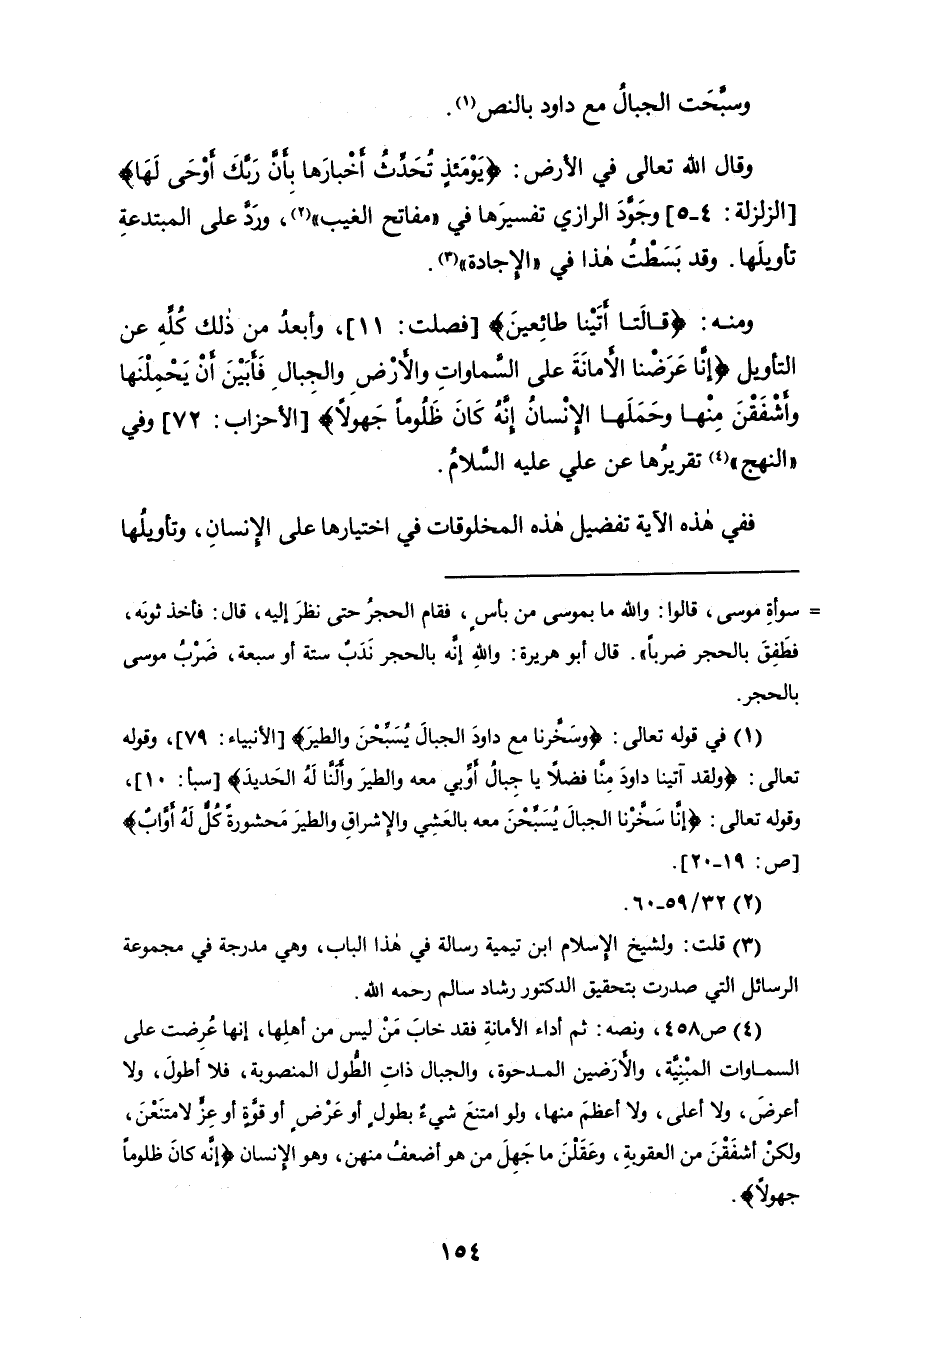 وسبَّحَت الجبالُ مع داود بالنص(١).
وقال الله تعالى في الأرض: ﴿يَوْمَئذٍ تُحَدِّثُ أَخْبارَها بِأَنَّ رَبَّكَ أَوْحَى لَهَا﴾
[الزلزلة: ٤-٥] وجَوَّدَ الرازي تفسيرَها في «مفاتح الغيب»(٢)، وردَّ على المبتدعةِ
تأويلَها. وقد بَسَطْتُ هٰذا في «الإجادة»(٣).
ومنه: ﴿قالَتا أَتَيْنا طائِعينَ﴾ [فصلت: ١١]، وأبعدُ من ذٰلك كُلِّهِ عن
التأويل ﴿إنَّا عَرَضْنا الأمانَةَ على السَّماواتِ والأرْضِ والجبالِ فَأَبَيْنَ أَنْ يَحْمِلْنَها
وأَشْفَقْنَ مِنْها وحَمَلَها الإنْسانُ إنَّهُ كَانَ ظَلُوماً جَهولاً﴾ [الأحزاب: ٧٢] وفي
«النهج»(٤) تقريرُها عن علي عليه السَّلامُ.
ففي هٰذه الآية تفضيل هٰذه المخلوقات في اختيارها على الإنسانِ، وتأويلُها
= سوأةِ موسى، قالوا: والله ما بموسى من بأسٍ، فقام الحجرُ حتى نظرَ إليه، قال: فأخذ ثوبَه،
فطَفِقَ بالحجر ضرباً». قال أبو هريرة: واللهِ إنَّه بالحجر نَدَبٌ ستة أو سبعة، ضَرْبُ موسى
بالحجر.
(١) في قوله تعالى: ﴿وسَخَّرنا مع داودَ الجبالَ يُسَبِّحْنَ والطيرَ﴾ [الأنبياء: ٧٩]، وقوله
تعالى: ﴿ولقد آتينا داودَ مِنَّا فضلًا يا جِبالُ أَوِّبي معه والطيرَ وأَلَنَّا لَهُ الحَديدَ﴾ [سبأ: ١٠]،
وقوله تعالى: ﴿إنَّا سَخَّرْنا الجبالَ يُسَبِّحْنَ معه بالعَشِي والإشراقِ والطيرَ مَحشورةً كُلٌّ لَهُ أوَّابٌ﴾
[ص: ١٩-٢٠].
(٢) ٣٢/ ٥٩-٦٠.
(٣) قلت: ولشيخ الإسلام ابن تيمية رسالة في هٰذا الباب، وهي مدرجة في مجموعة
الرسائل التي صدرت بتحقيق الدكتور رشاد سالم رحمه الله.
(٤) ص٤٥٨، ونصه: ثم أداء الأمانةِ فقد خابَ مَنْ ليس من أهلِها، إنها عُرِضت على
السماوات المَبْنِيَّة، والأَرَضين المدحوة، والجبال ذاتِ الطُّول المنصوبة، فلا أطولَ، ولا
أعرضَ، ولا أعلى، ولا أعظمَ منها، ولو امتنعَ شيءٌ بطولٍ أو عَرْضٍ أو قوَّةٍ أو عِزٍّ لامتنَعْنَ،
ولكنْ أشفَقْنَ من العقوبةِ، وعَقَلْنَ ما جَهِلَ من هو أضعفُ منهن، وهو الإنسان ﴿إنَّه كانَ ظلوماً
جهولاً﴾.
١٥٤